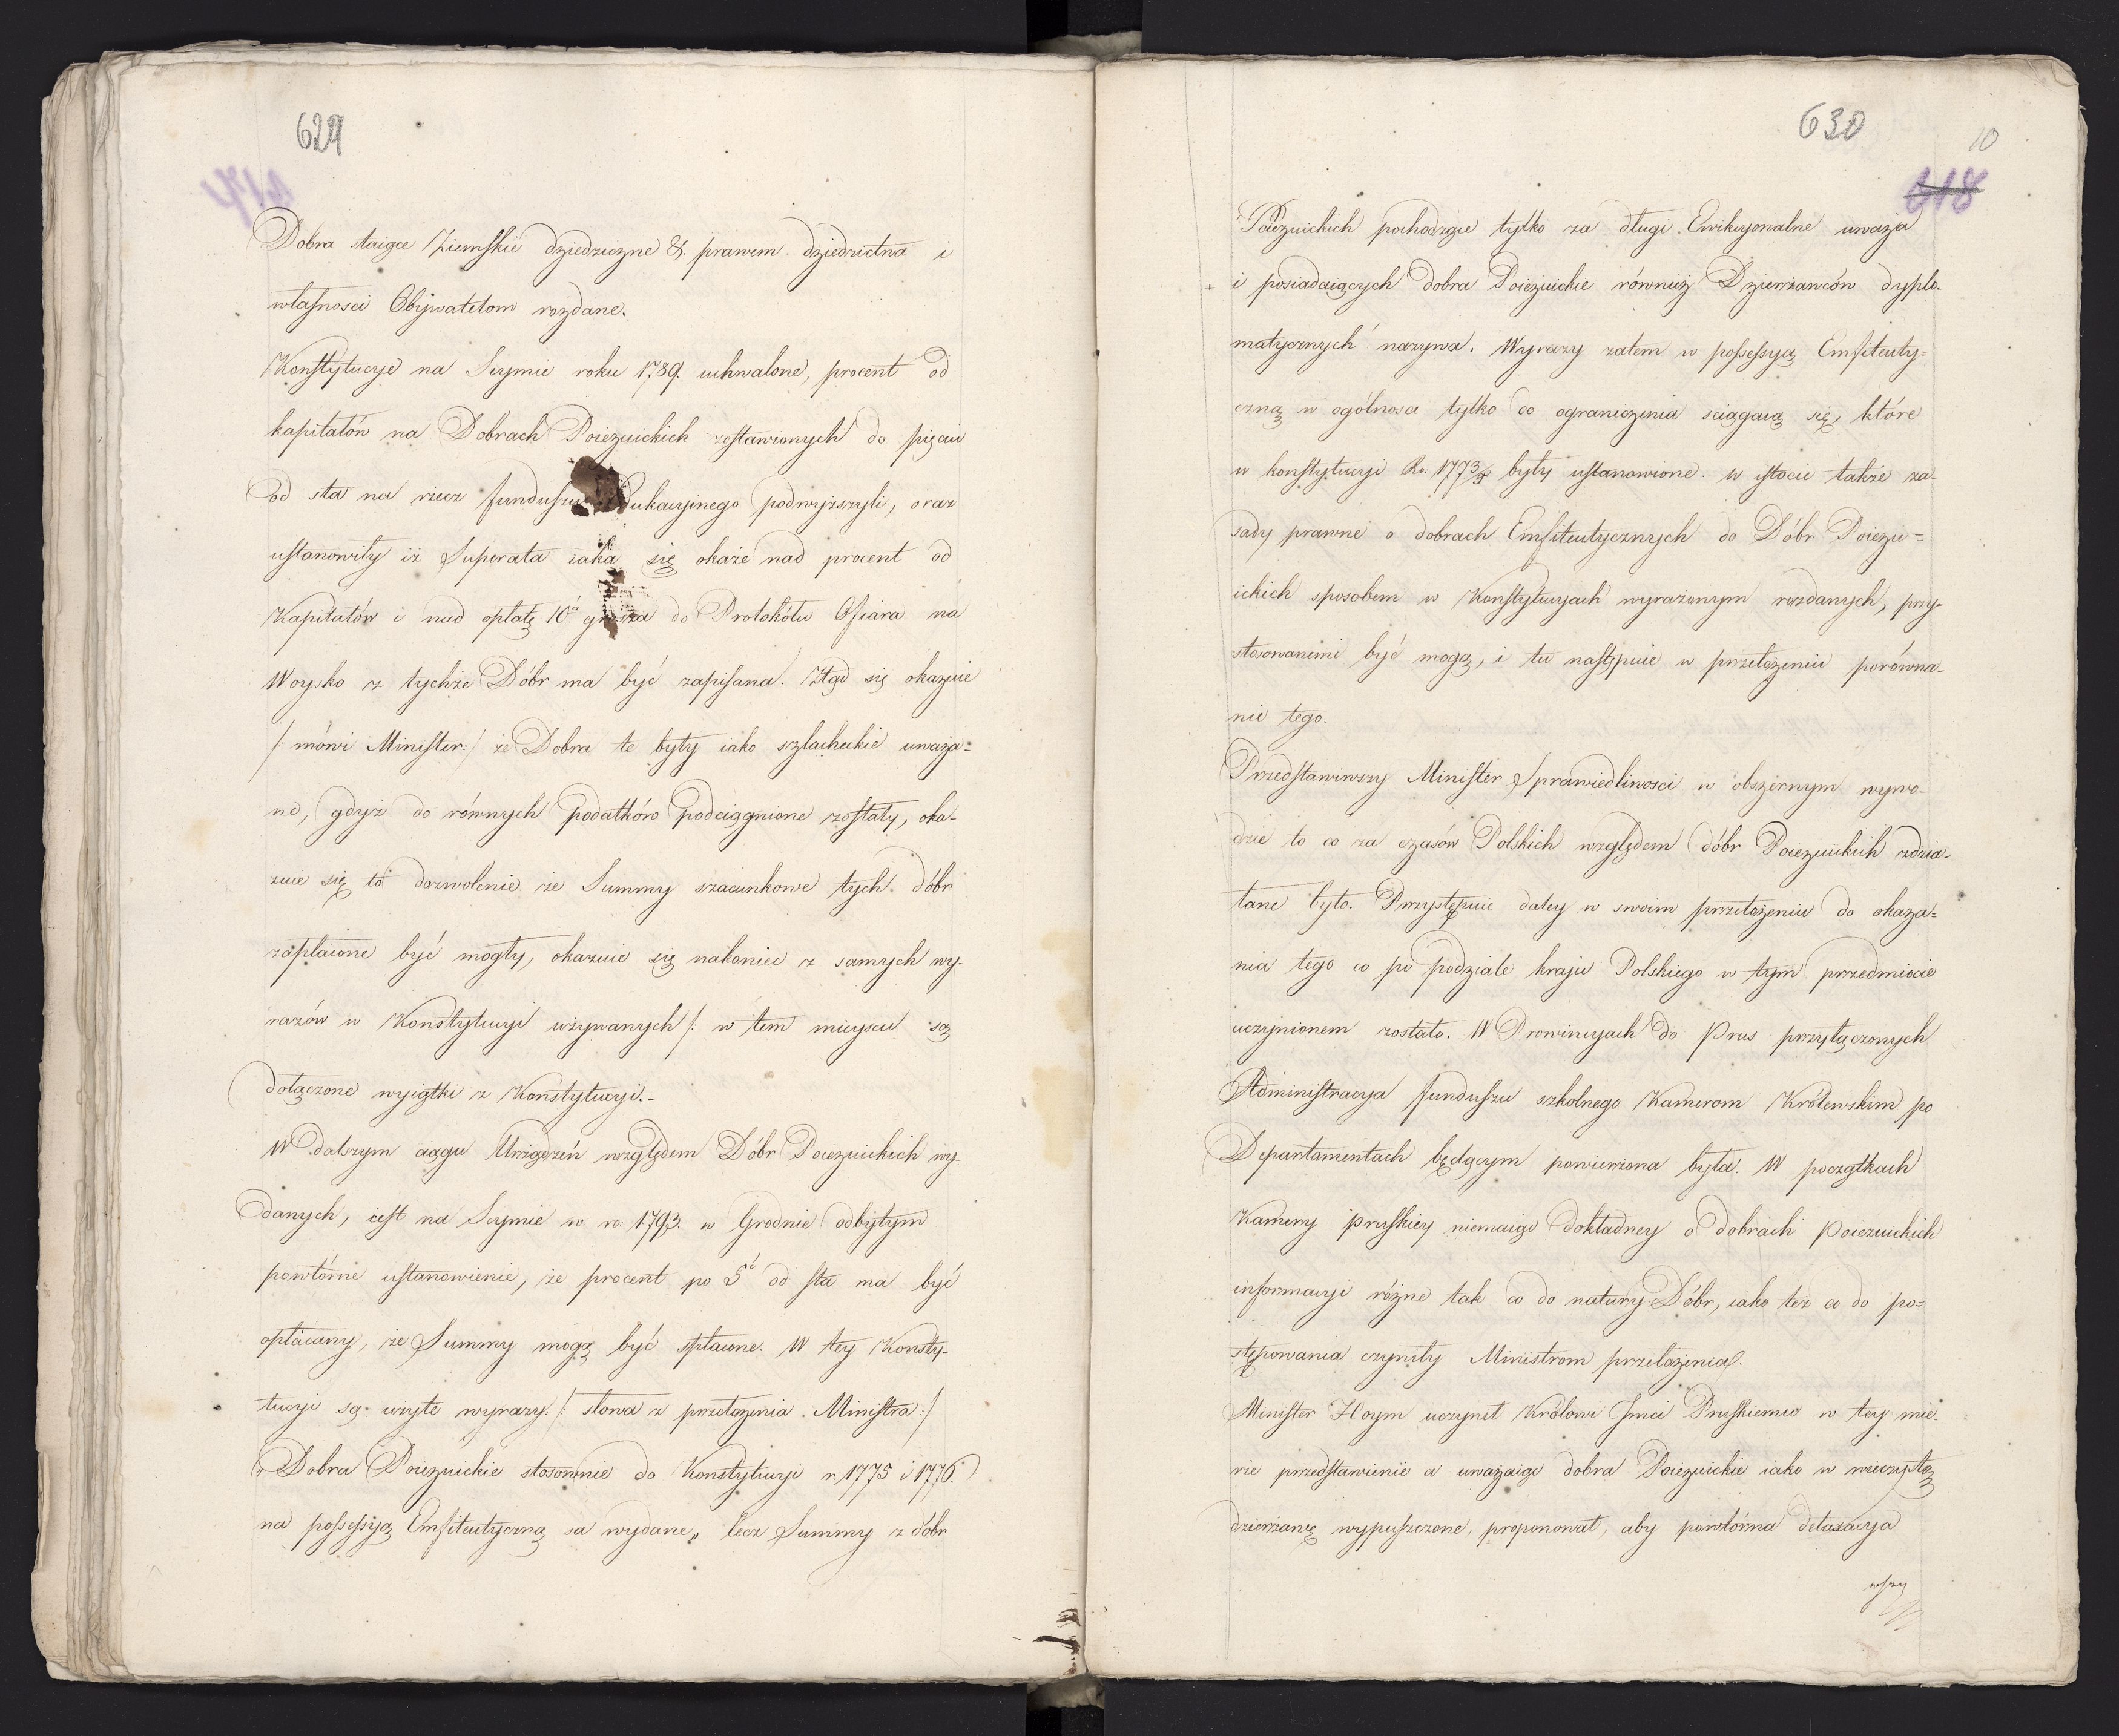 629
417
Dobra staiąc Ziemskie dziedziczne &. prawem dziedzictwa i
własnosci Obywatelom rozdane.
Konstytucye na Seymie roku 1789. uchwalone, procent od
kapitałów na Dobrach Poiezuickich zostawionych do pięciu
od sta na rzecz funduszu Edukacyinego podwyższyli, oraz
ustanowiły iż Superata iaka się okaże nad procent od
Kapitałów i nad opłatę 10ᵒ grosza do Protokółu Ofiara na
Woysko z tychże Dóbr ma być zapisana. Ztąd się okazuie
/: mówi Minister:/ że Dobra te były iako szlacheckie uważa=
ne, gdyż do równych podatków podciągnione zostały, oka-
zuie się to dozwolenie że Summy szacunkowe tych dóbr
zapłacone być mogły, okazuie się nakoniec z samych wy-
razów w Konstytucyi używanych /: w tem mieyscu są
dołączone wyiątki z Konstytucyi.-
W dalszym ciągu Urządzeń względem Dóbr Poiezuickich wy-
danych, iest na Seymie w ro: 1793. w Grodnie odbytym
powtórne ustanowienie, że procent po 5ᶜ od sta ma być
opłacany, że Summy mogą być spłacone. W tey Konsty-
tucyi są użyte wyrazy. /: słowa z przełożenia Ministra :/
„Dobra Poiezuickie stosownie do Konstytucyi r. 1775 i 1776.
na possessyą Emfiteutyczną sa wydane„ lecz Summy z dóbr
630
10
418
Poiezuickich pochodzące tylko za długi Ewikcyonalne uważa
+ i posiadaiących dobra Poiezuickie również Dzierżawców dyplo-
matycznych nazywa. Wyrazy zatem w possessyą Emfiteuty=
czną w ogólnosci tylko do ograniczenia sciągaią się, które
w konstytucyi Ru. 1773/5 były ustanowione. w istocie także za-
sady prawne o dobrach Emfiteutycznych do Dóbr Poiezu=
ickich sposobem w Konstytucyach wyrażonym rozdanych, przy-
stosowanemi być mogą, i tu następuie w przełożeniu porówna-
nie tego.
Przedstawiwszy Minister Sprawiedliwosci w obszernym wywo-
dzie to co za czasów Polskich względem dóbr Poiezuickich zdzia-
łane było. Przystępuie daley w swoim przełożeniu do okaza=
nia tego co po podziale kraju Polskiego w tym przedmiocie
uczynionem zostało. W Prowincyach do Prus przyłączonych
Administracya funduszu szkolnego Kamerom Królewskim po
Departamentach będącym powierzona była. W początkach
Kamery pruskiey niemaiąc dokładney o dobrach Poiezuickich
informacyi różne tak co do natury Dóbr, iako też co do po=
stępowania czyniły Ministrom przełożenia.
Minister Hoym uczynił Królowi Jmci Pruskiemu w tey mie-
rze przedstawienie a uważaiąc dobra Poiezuickie iako w wieczystą
dzierżawę wypuszczone, proponował, aby powtórna detaxacya